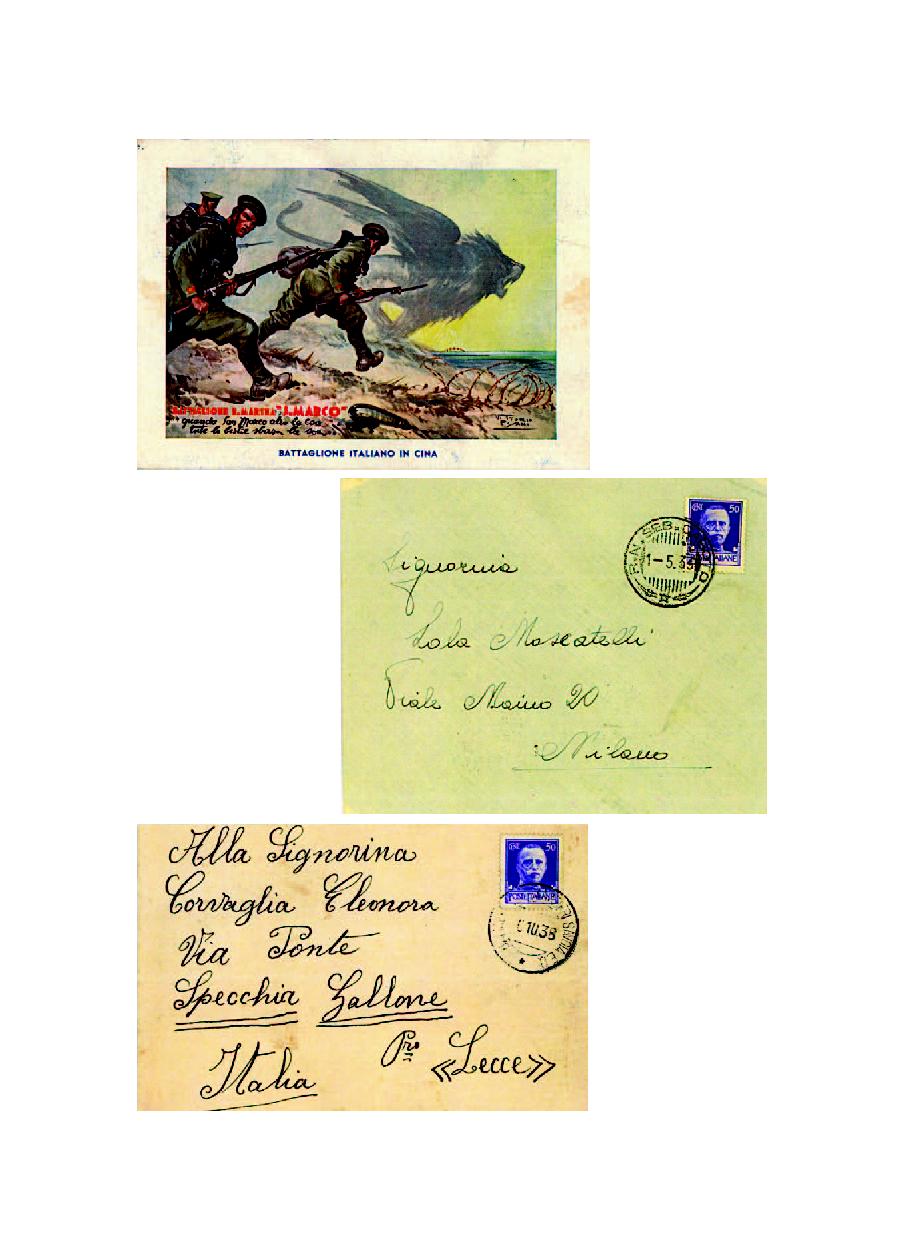 BATTAGLIONE R. MARINA "S. MARCO"
"quando San Marco alza la coa
tute le bestie sbassa la soa"
VITTORIO
PISANI
BATTAGLIONE ITALIANO IN CINA
CENT 50
R.N. SEB.
1-5.39
Signorina
Lola Moscatelli
Viale Maino 20
Milano
Alla Signorina
Corvaglia Eleonora
Via Ponte
Specchia Gallone
Pro «Lecce»
Italia
CENT 50
POSTE ITALIANE
10.38